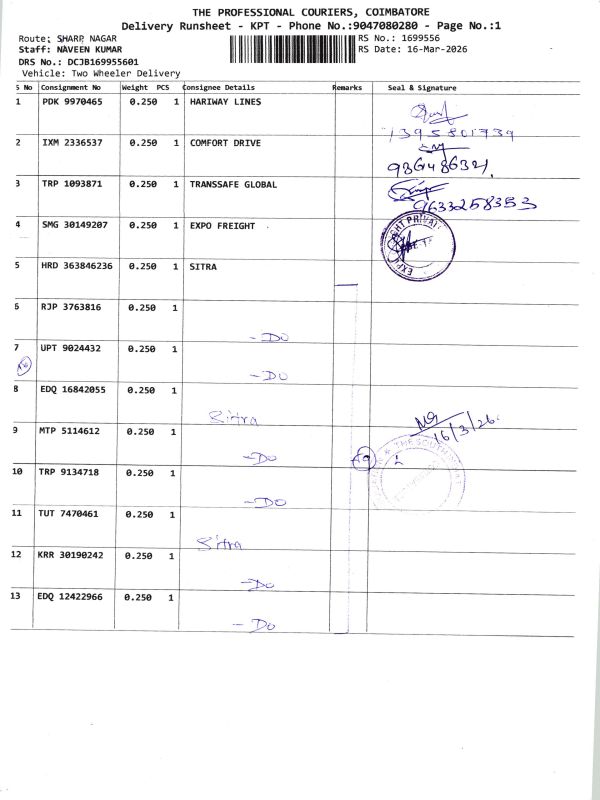 THE PROFESSIONAL COURIERS, COIMBATORE
Delivery Runsheet - KPT - Phone No.:9047080280 - Page No.:1
Route: SHARP NAGAR RS No.: 1699556
Staff: NAVEEN KUMAR RS Date: 16-Mar-2026
DRS No.: DCJB169955601
Vehicle: Two Wheeler Delivery
S No Consignment No Weight PCS Consignee Details Remarks Seal & Signature
1 PDK 9970465 0.250 1 HARIWAY LINES
1395801739
2 IXM 2336537 0.250 1 COMFORT DRIVE
936486321
3 TRP 1093871 0.250 1 TRANSSAFE GLOBAL
9633258353
4 SMG 30149207 0.250 1 EXPO FREIGHT
5 HRD 363846236 0.250 1 SITRA
6 RJP 3763816 0.250 1
- Do
7 UPT 9024432 0.250 1
- Do
8 EDQ 16842055 0.250 1
Sitra
9 MTP 5114612 0.250 1 16/3/26.
- Do
THE SOUTH
10 TRP 9134718 0.250 1
- Do
11 TUT 7470461 0.250 1
Sitra
12 KRR 30190242 0.250 1
- Do
13 EDQ 12422966 0.250 1
- Do